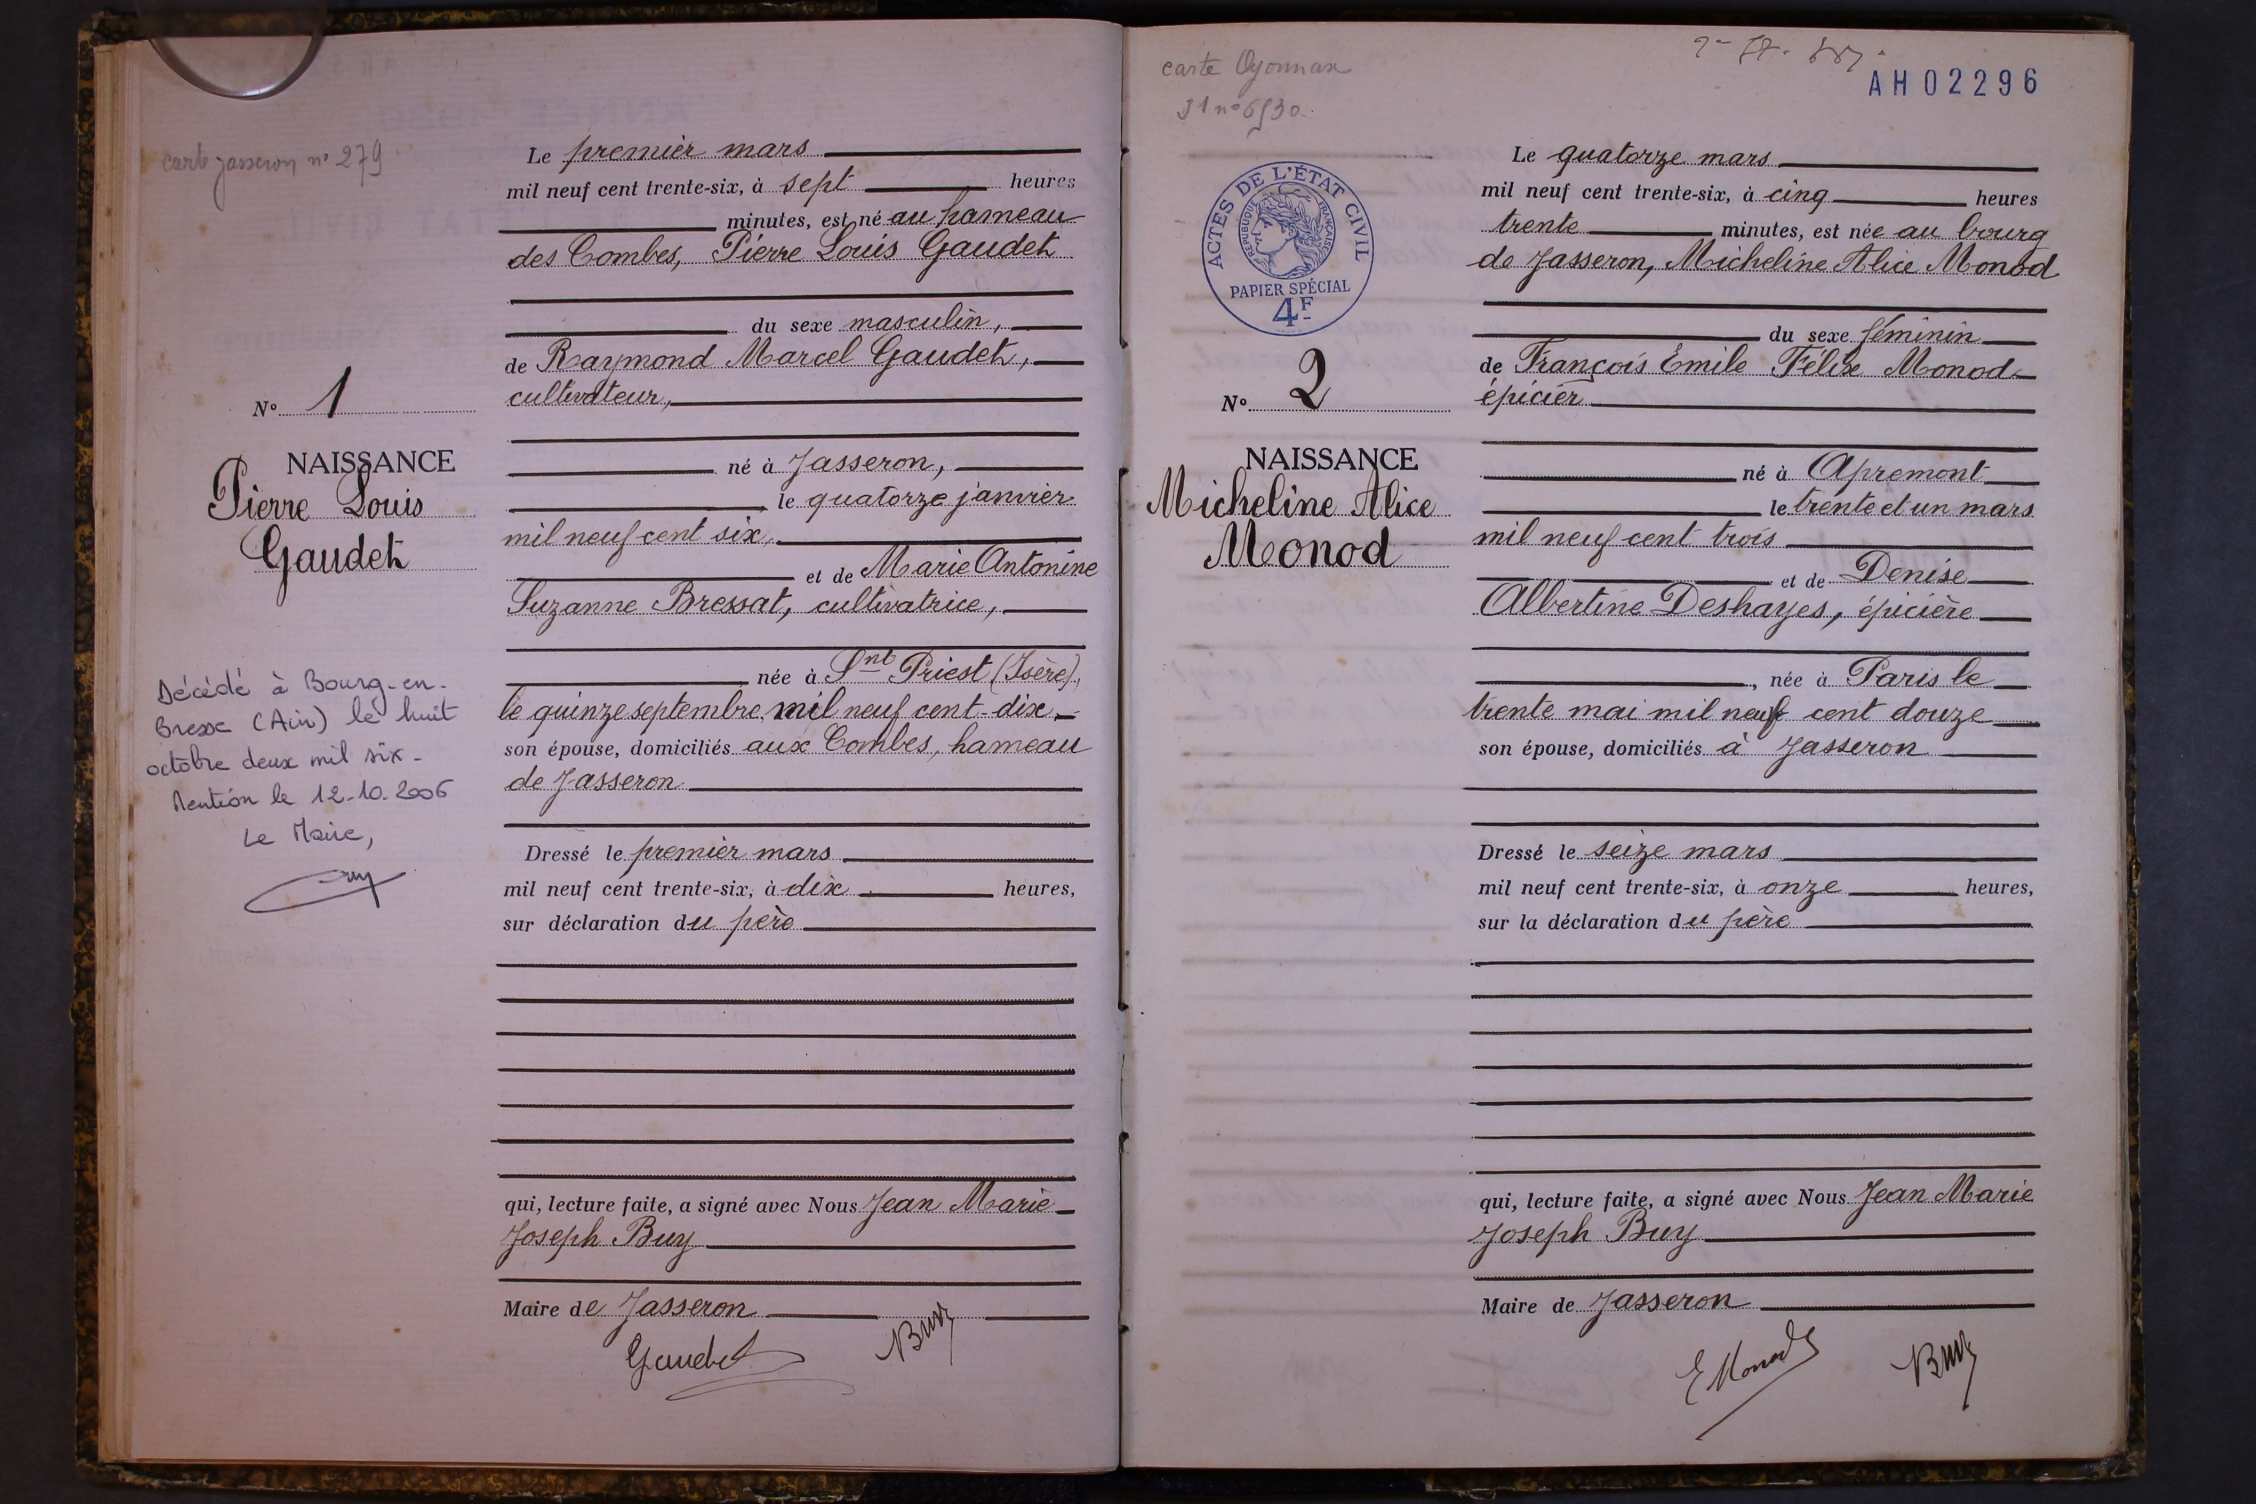 carte Jasseron n° 279
Le premier mars
mil neuf cent trente-six, à sept heures
minutes, est né au hameau
des Combes, Pierre Louis Gaudet
du sexe masculin,
de Raymond Marcel Gaudet,
cultivateur,
N° 1
NAISSANCE
Pierre Louis
Gaudet
né à Jasseron,
le quatorze janvier
mil neuf cent six,
et de Marie Antonine
Suzanne Bressat, cultivatrice,
née à Snt Priest (Isère),
le quinze septembre mil neuf cent-dix,
son épouse, domiciliés aux Combes, hameau
de Jasseron
Décédé à Bourg-en-
Bresse (Ain) le huit
octobre deux mil six-
Mention le 12-10-2006
Le Maire,
Dressé le premier mars
mil neuf cent trente-six, à dix heures,
sur déclaration du père
qui, lecture faite, a signé avec Nous Jean Marie
Joseph Buy
Maire de Jasseron
Gaudet Buy
carte Oyonnax
AH02296
ACTES DE L'ÉTAT CIVIL
RÉPUBLIQUE FRANÇAISE
PAPIER SPÉCIAL
4F
Le quatorze mars
mil neuf cent trente-six, à cinq heures
trente minutes, est née au bourg
de Jasseron, Micheline Alice Monod
du sexe féminin
de François Emile Félix Monod
épicier
N° 2
NAISSANCE
Micheline Alice
Monod
né à Apremont
le trente et un mars
mil neuf cent trois
et de Denise
Albertine Deshayes, épicière
, née à Paris le
trente mai mil neuf cent douze
son épouse, domiciliés à Jasseron
Dressé le seize mars
mil neuf cent trente-six, à onze heures,
sur la déclaration du père
qui, lecture faite, a signé avec Nous Jean Marie
Joseph Buy
Maire de Jasseron
E Monod Buy